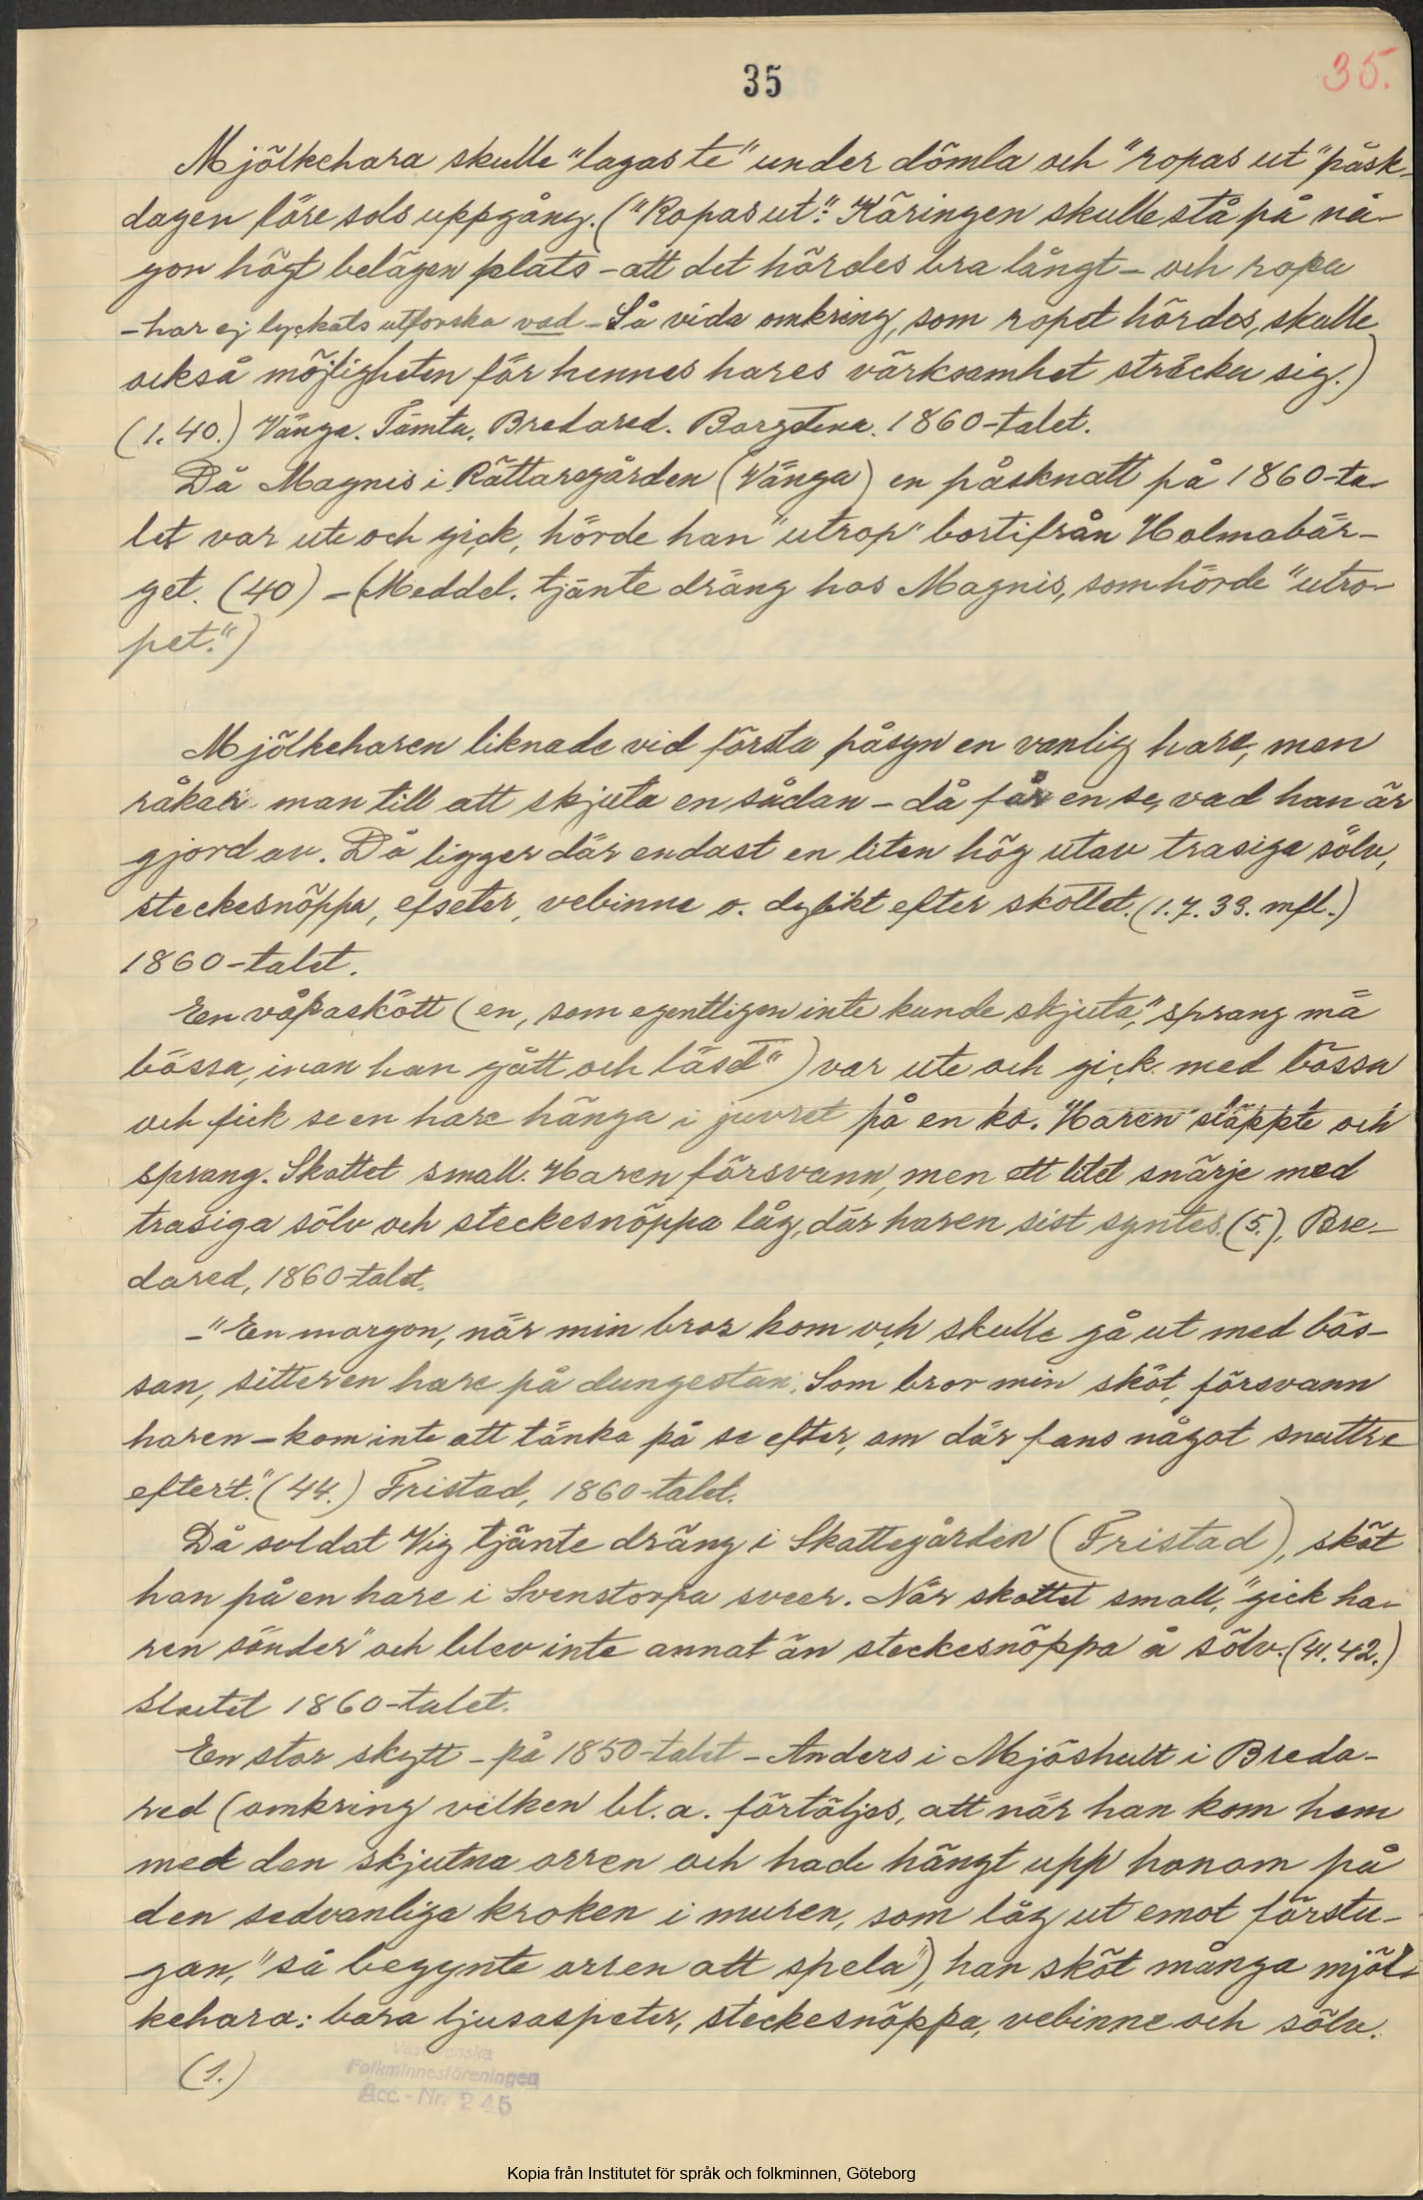 35
35.
Mjölkehara skulle "lagas te" under dömla och "ropas ut" påsk-
dagen före sols uppgång. ("Ropas ut": Käringen skulle stå på nå-
gon högt belägen plats – att det hördes bra långt – och ropa
– har ej lyckats utforska vad – Så vida omkring, som ropet hördes, skulle
också möjligheten för hennes hares värksamhet sträcka sig.)
(1. 40.) Vänga. Tämta. Bredared. Borgstena. 1860-talet.
Då Magnis i Rättaregården (Vänga) en påsknatt på 1860-ta-
let var ute och gick, hörde han "utrop" bortifrån Holmabär-
get. (40) – (Meddel. tjänte dräng hos Magnis, som hörde "utro-
pet.")
Mjölkeharen liknade vid första påsyn en vanlig hare, men
råkar man till att skjuta en sådan – då får en se, vad han är
gjord av. Då ligger där endast en liten hög utav trasiga sölv,
steckesnöppa, efseter, vebinne o. dylikt efter skottet. (1. 7. 33. mfl.)
1860-talet.
En våpaskött (en, som egentligen inte kunde skjuta, "sprang mä
bössa, inan han gått och läsd") var ute och gick med bössa
och fick se en hare hänga i juvret på en ko. "Haren" släppte och
sprang. Skottet small. Haren försvann, men ett litet snärje med
trasiga sölv och steckesnöppa låg, där haren sist syntes. (5.), Bre-
dared, 1860-talet.
– "En morgon, när min bror kom och skulle gå ut med bös-
san, sitter en hare på dungestan. Som bror min sköt, försvann
haren – kom inte att tänka på se efter, om där fans något snuttre
efter't." (44.) Fristad, 1860-talet.
Då soldat Vig tjänte dräng i Skattegården (Fristad), sköt
han på en hare i Svenstorpa sveer. När skottet small, "gick ha-
ren sönder" och blev inte annat än steckesnöppa å sölv. (41. 42.)
Slutet 1860-talet.
En stor skytt – på 1850-talet – Anders i Mjöshult i Breda-
red (omkring vilken bl. a. förtäljes, att när han kom hem
med den skjutna orren och hade hängt upp honom på
den sedvanliga kroken i muren, som låg ut emot förstu-
gan, "så begynte orren att spela"), han sköt många mjöl-
kehara: bara ljusaspeter, steckesnöppa, vebinne och sölv.
(1.)
Västsvenska
Folkminnesföreningen
Acc.-Nr. 245
Kopia från Institutet för språk och folkminnen, Göteborg